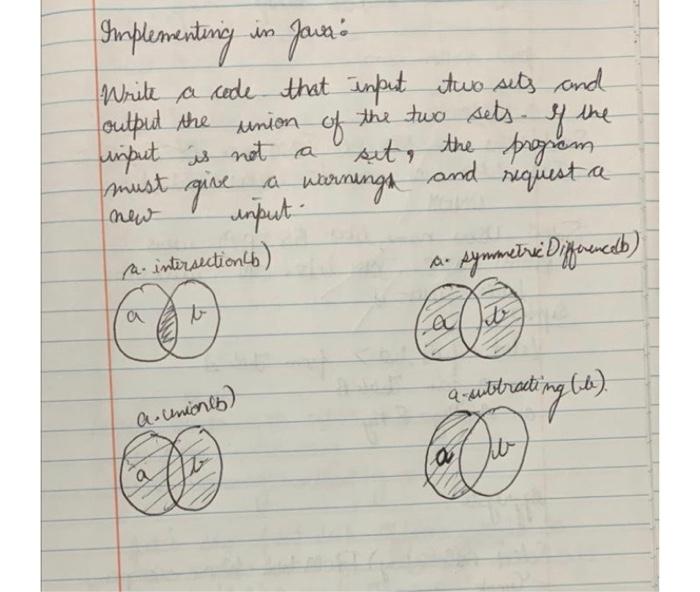 Implementing in Java:
Write a code that input two sets and
output the union of the two sets. If the
input is not a set, the program
must give a warning and request a
new input.
a. intersection(b)
a. symmetricDifference(b)
a b
a b
a. union(b)
a. subtracting(b).
a b
a b